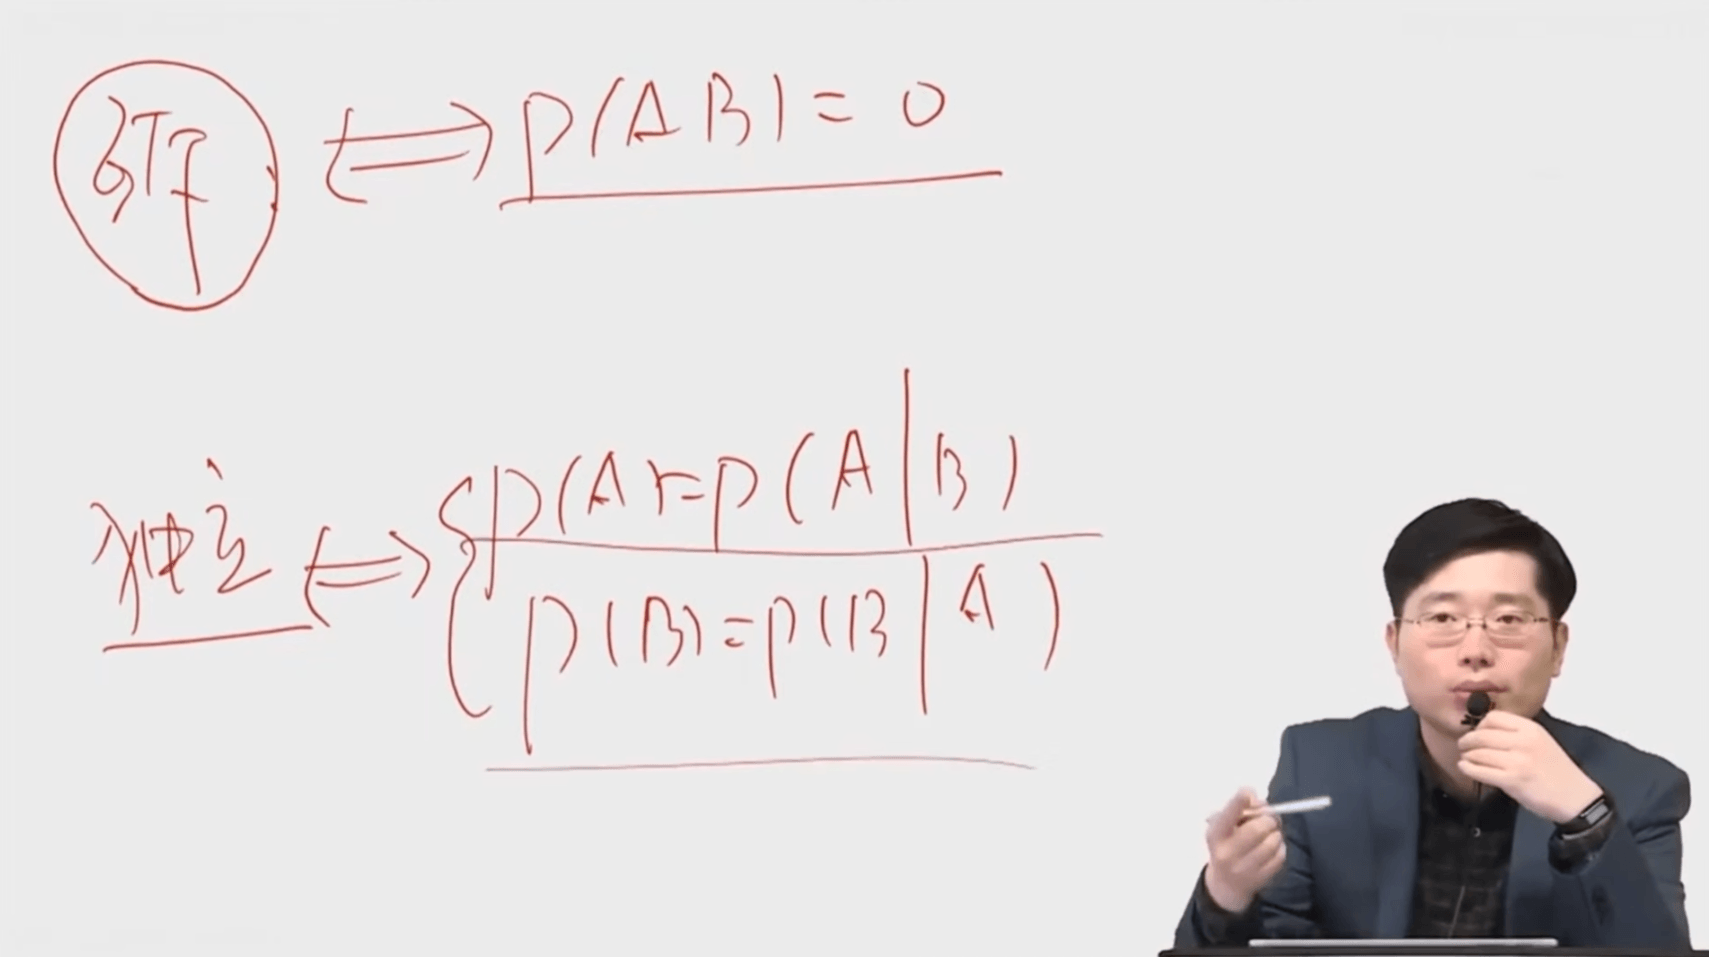 互斥 ⟺ P(AB) = 0
独立 ⟺ { P(A) = P(A|B)
P(B) = P(B|A)